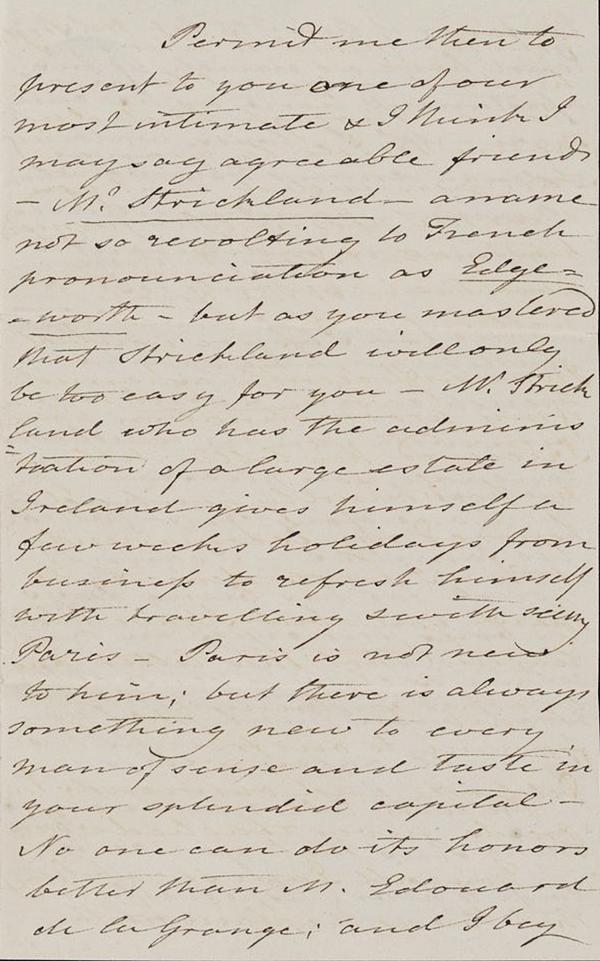 Permit me then to
present to you one of our
most intimate & I think I
may say agreeable friends
– Mr. Strickland – a name
not so revolting to French
pronounciation as Edge=
=worth – but as you mastered
that Strickland will only
be too easy for you – Mr. Strick
=land who has the adminis
tration of a large estate in
Ireland gives himself a
few weeks holidays from
business to refresh himself
with travelling & with seeing
Paris – Paris is not new
to him; but there is always
something new to every
man of sense and taste in
your splendid capital –
No one can do its honors
better than M. Edouard
de la Grange; and I beg